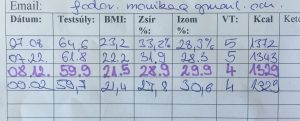 Email: fodor.monika@gmail.com
Dátum: Testsúly: BMI: Zsír %: Izom %: VT: Kcal
07.08 64,6 23,2 33,2% 28,3% 5 1372
07.22. 61.8 22.2 31.9 28.5 5 1343
08.12. 59.9 21.5 28.9 29.9 4 1329
09.02 59,7 21,4 27,8 30,6 4 1329